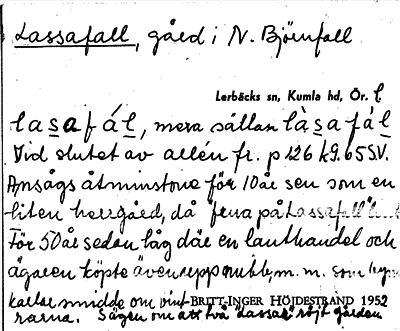 Lassafall, gård i N. Björnfall
Lerbäcks sn, Kumla hd, Ör. l
l a s a f á l, mera sällan l à s a f á l
Vid slutet av allén fr. p 126 k9. 65 SV.
Ansågs åtminstone för 10 år sen som en
liten herrgård, då fina på Lassafall"
För 50 år sedan låg där en lanthandel och
ägaren köpte även upp m. m. som
smidde om vint BRITT-INGER HÖJDESTRAND 1952
rarna. Sägen om att två Lassar röjt gården